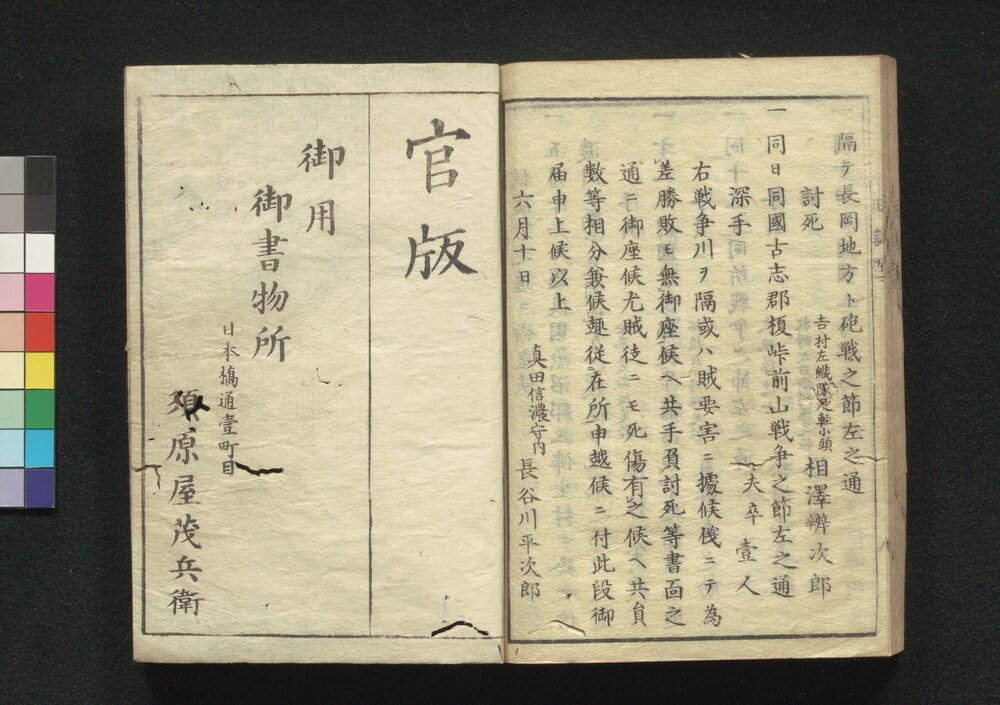 隔テ長岡地方ト砲戦之節左之通
討死 吉村左織隊足軽小頭 相澤辨次郎
一同日同國古志郡榎峠前山戦争之節左之通
深手 夫卒壹人
右戦争川ヲ隔或ハ賊要害ニ據候儀ニテ為
差勝敗モ無御座候ヘ共手負討死等書面之
通ニ御座候尤賊徒ニモ死傷有之候ヘ共員
數等相分兼候趣従在所申越候ニ付此段御
届申上候以上
六月十日 真田信濃守内 長谷川平次郎
官版
御用
御書物所
日本橋通壹町目
須原屋茂兵衛